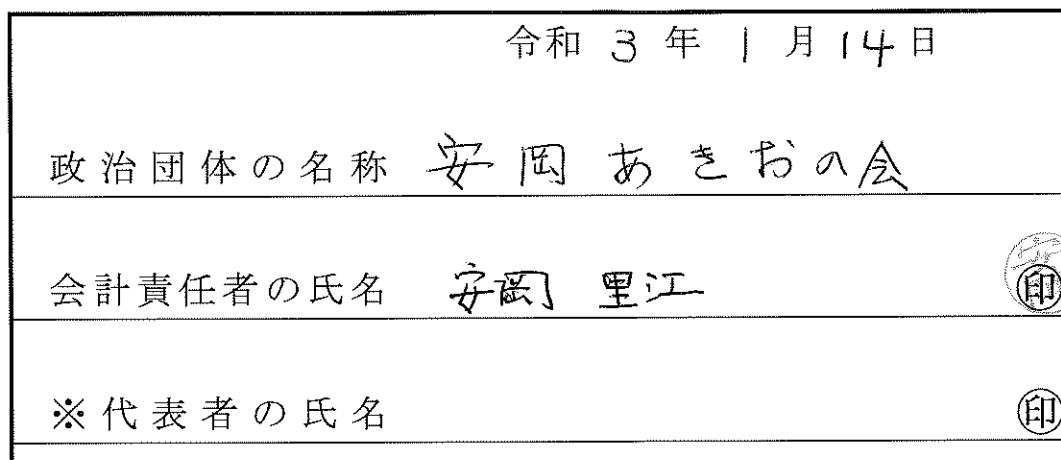 令和 3 年 1 月 14 日
政治団体の名称 安岡あきおの会
会計責任者の氏名 安岡 里江 ㊞
※代表者の氏名 ㊞